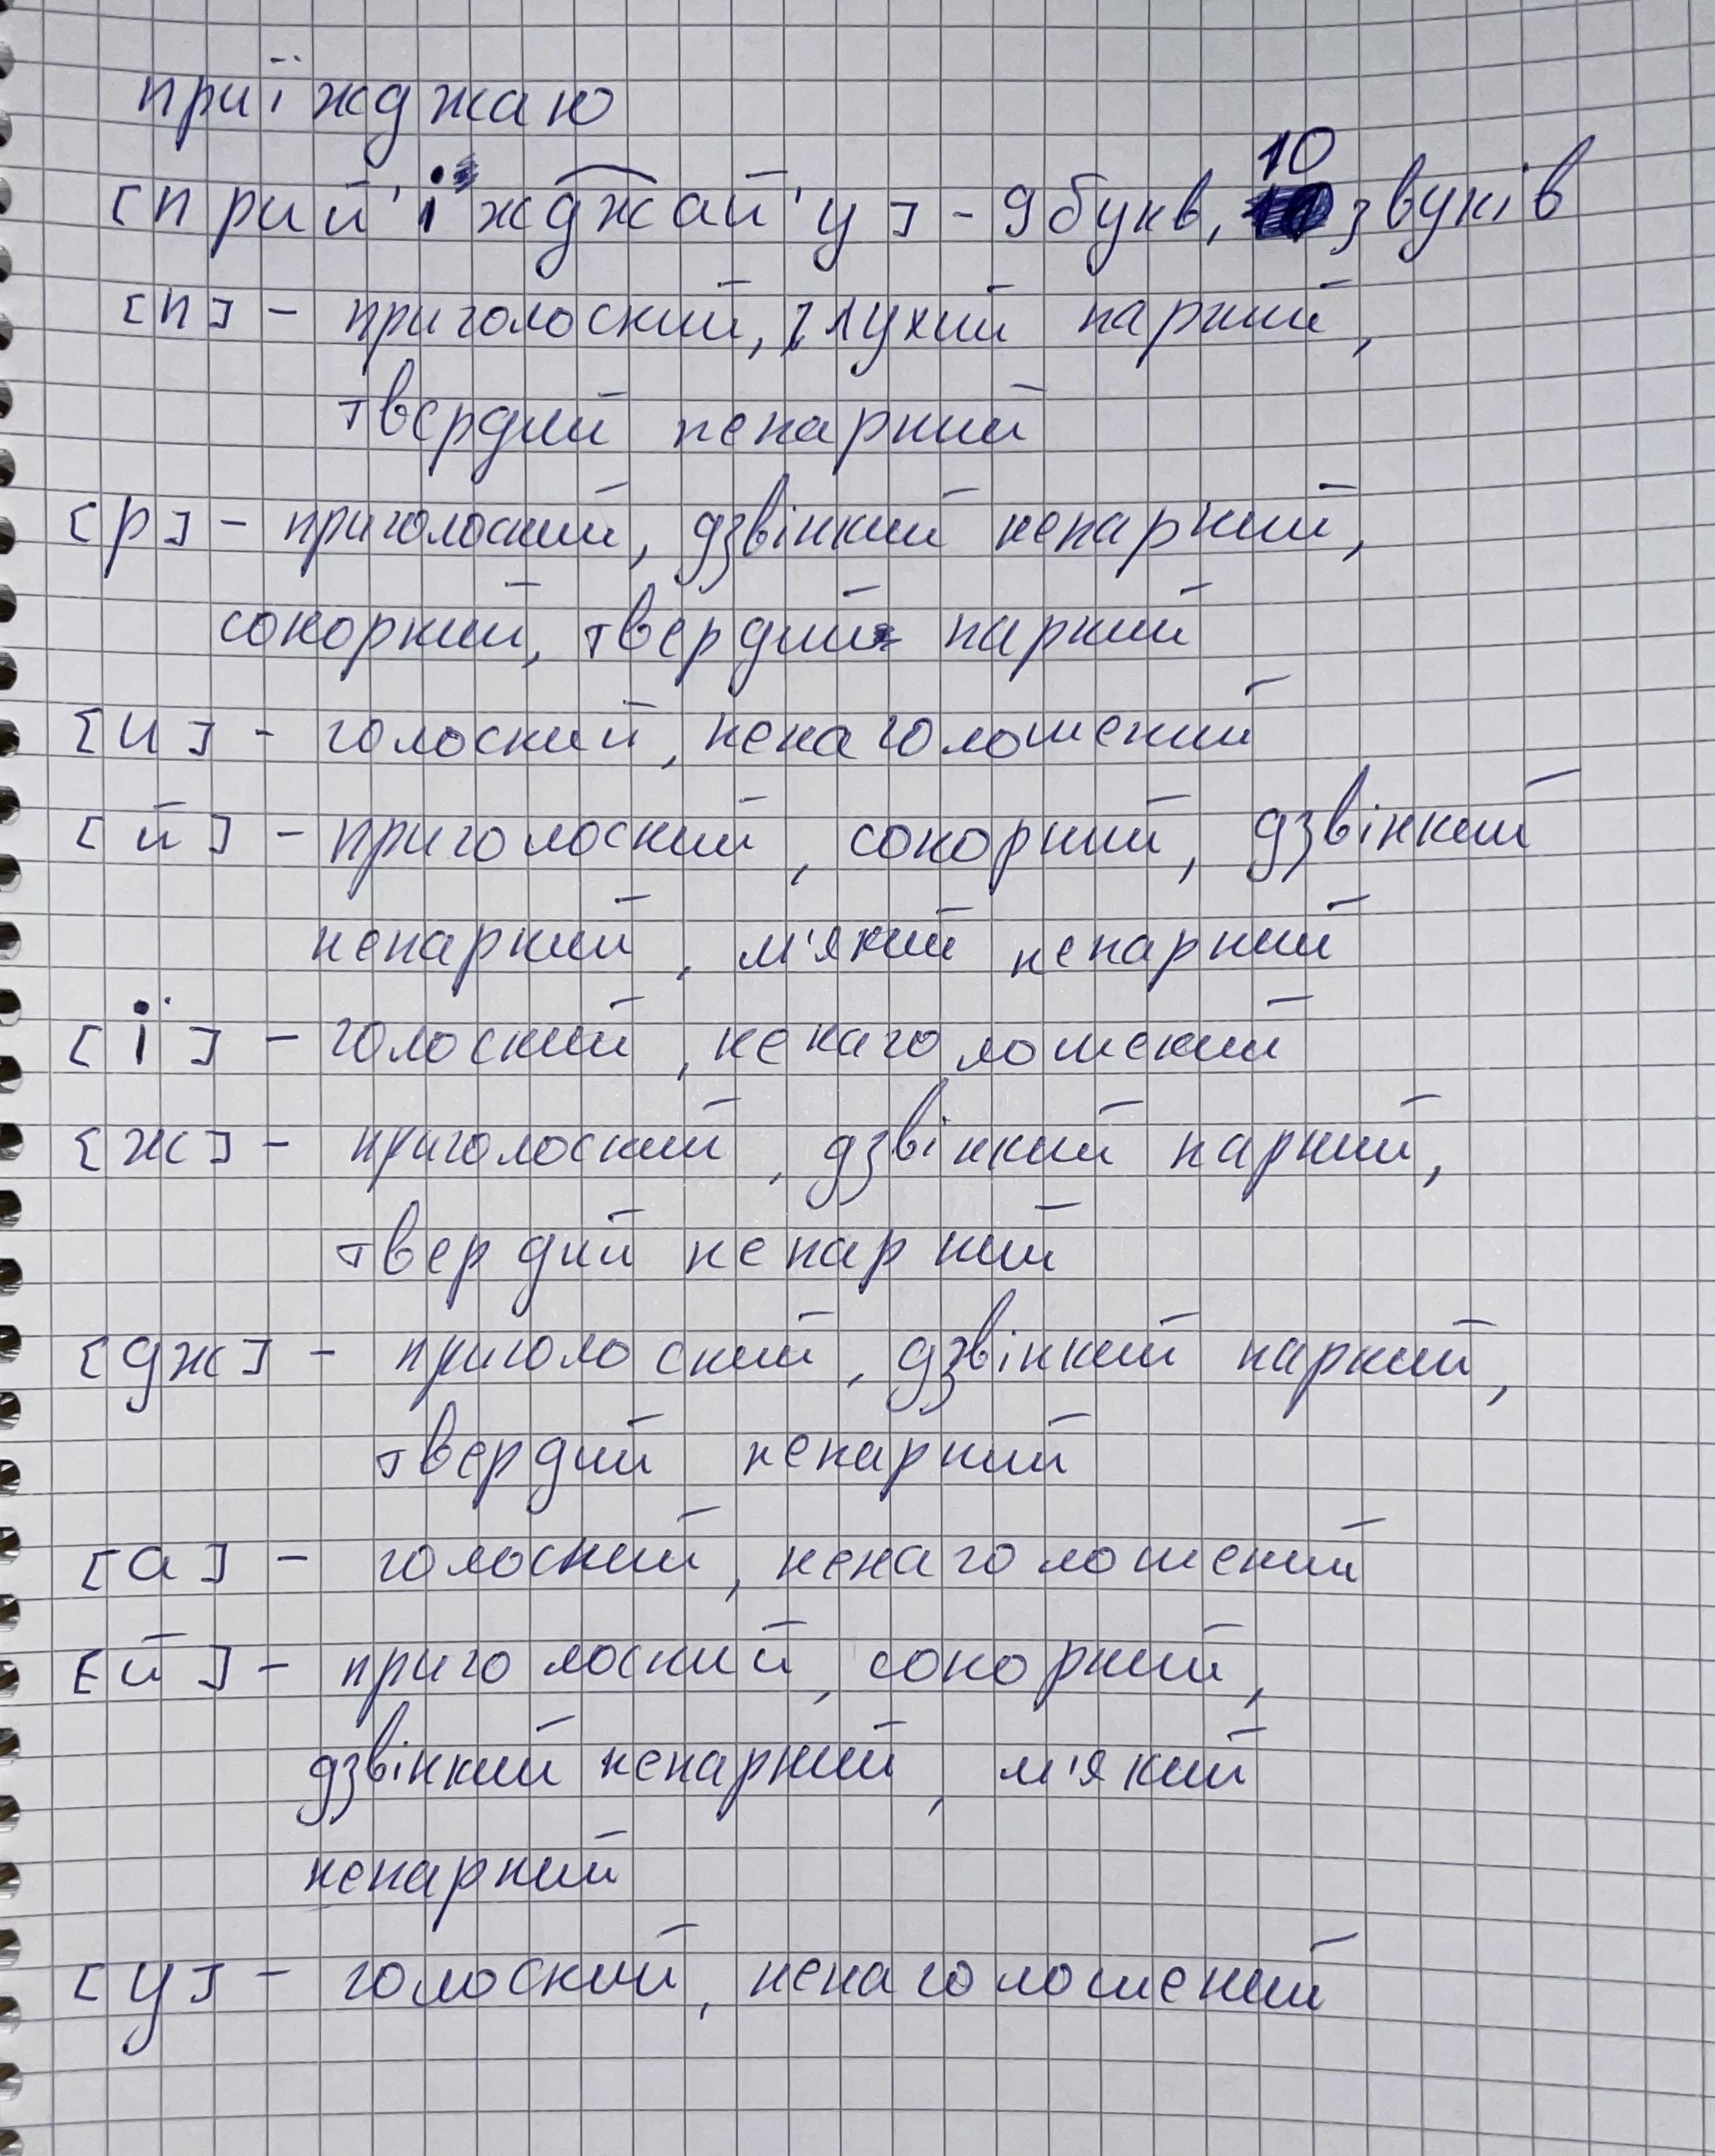 приїжджаю
[прий'іжджай'у] - 9 букв, 10 звуків
[п] - приголосний, глухий парний,
твердий непарний
[р] - приголосний, дзвінкий непарний,
сонорний, твердий парний
[и] - голосний, ненаголошений
[й] - приголосний, сонорний, дзвінкий
непарний, м'який непарний
[і] - голосний, ненаголошений
[ж] - приголосний, дзвінкий парний,
твердий непарний
[дж] - приголосний, дзвінкий парний,
твердий непарний
[а] - голосний, ненаголошений
[й] - приголосний, сонорний,
дзвінкий непарний, м'який
непарний
[у] - голосний, ненаголошений